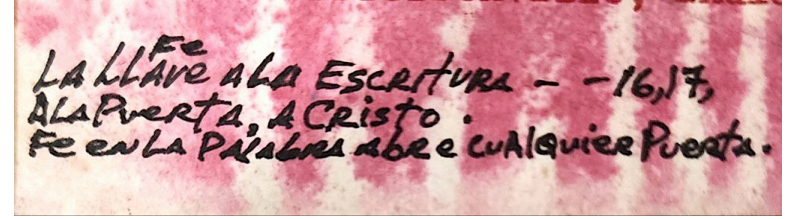 Fe
LA LLAve A LA EscRitURA - -16,17,
A LA PueRtA, A CRisto.
Fe en LA PALAbRA AbRe cUALquieR PueRtA.